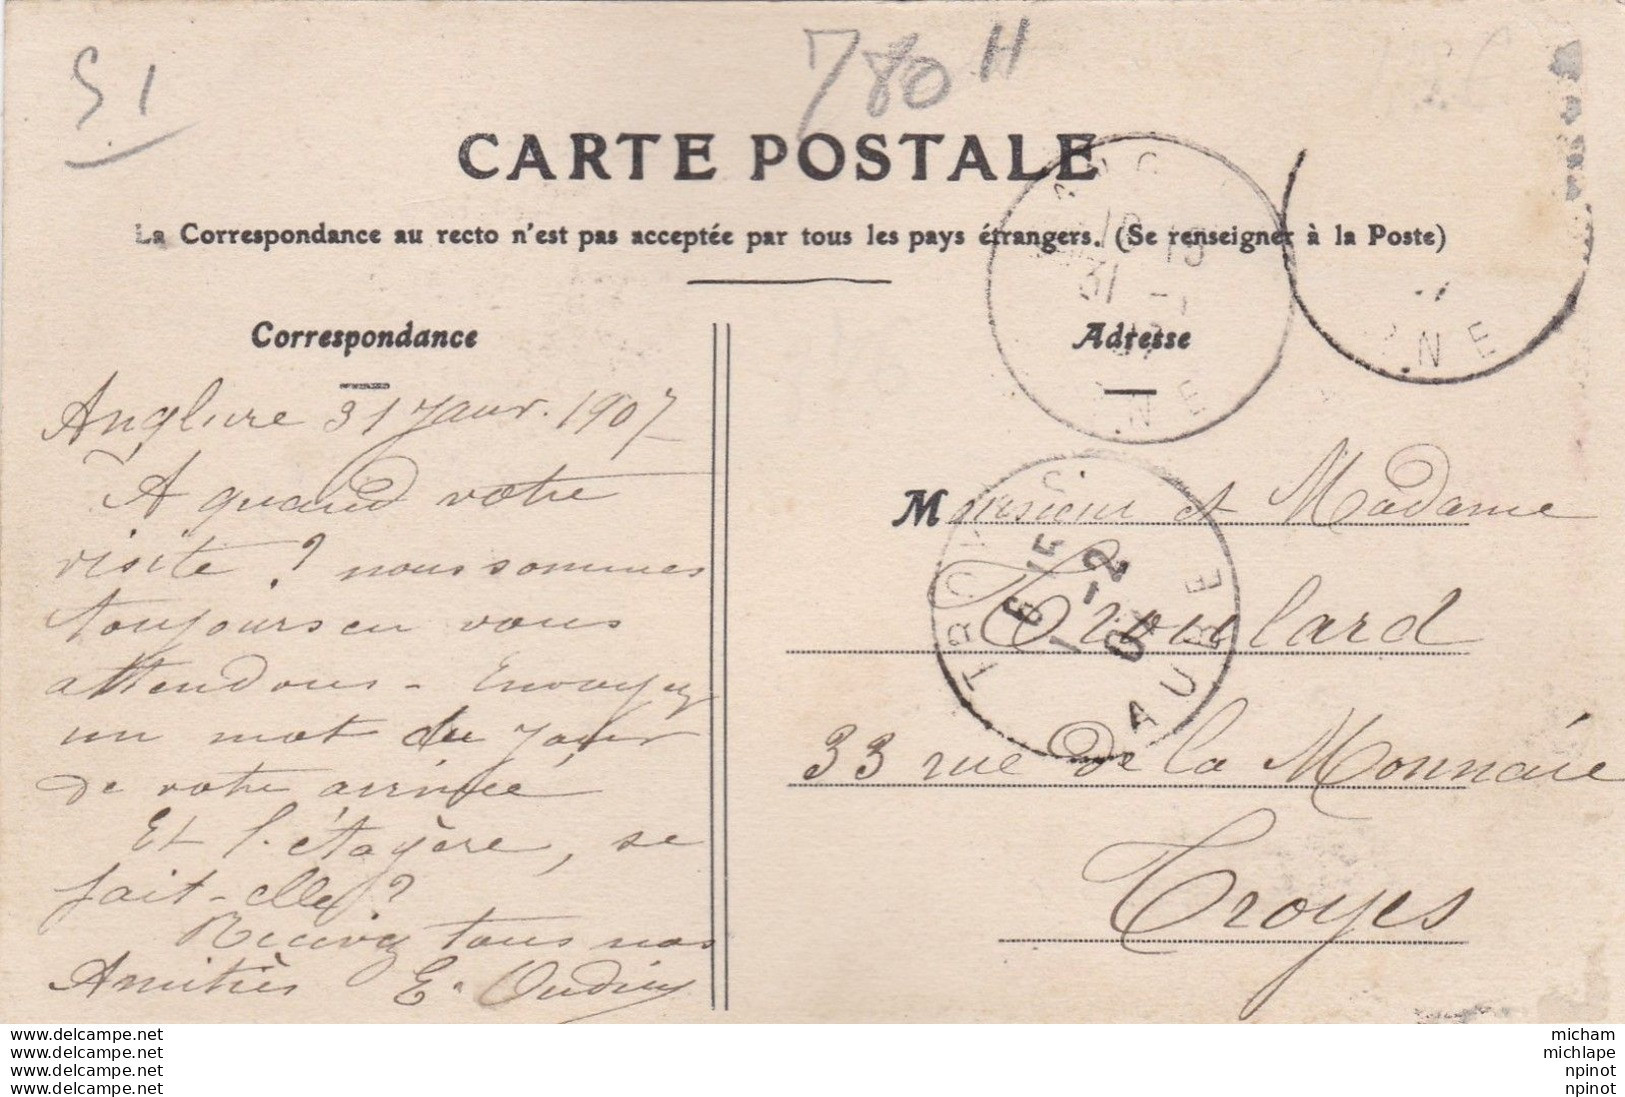 51
780 H
CARTE POSTALE
La Correspondance au recto n'est pas acceptée par tous les pays étrangers. (Se renseigner à la Poste)
Correspondance
Anglure 31 Janv. 1907
A quand votre
visite ? nous sommes
toujours en vous
attendous - Envoyez
un mot du jour
de votre arrivée
Et l'étagère, se
fait-elle ?
Recevez tous nos
Amitiès E. Oudin
Adresse
Monsieur et Madame
Troulard
33 rue de la Monnaie
Troyes
31 -1
07
NE
NE
TROYES
6 15
1 -2
07
AUBE
www.delcampe.net
www.delcampe.net
www.delcampe.net
www.delcampe.net
micham
michlape
npinot
npinot